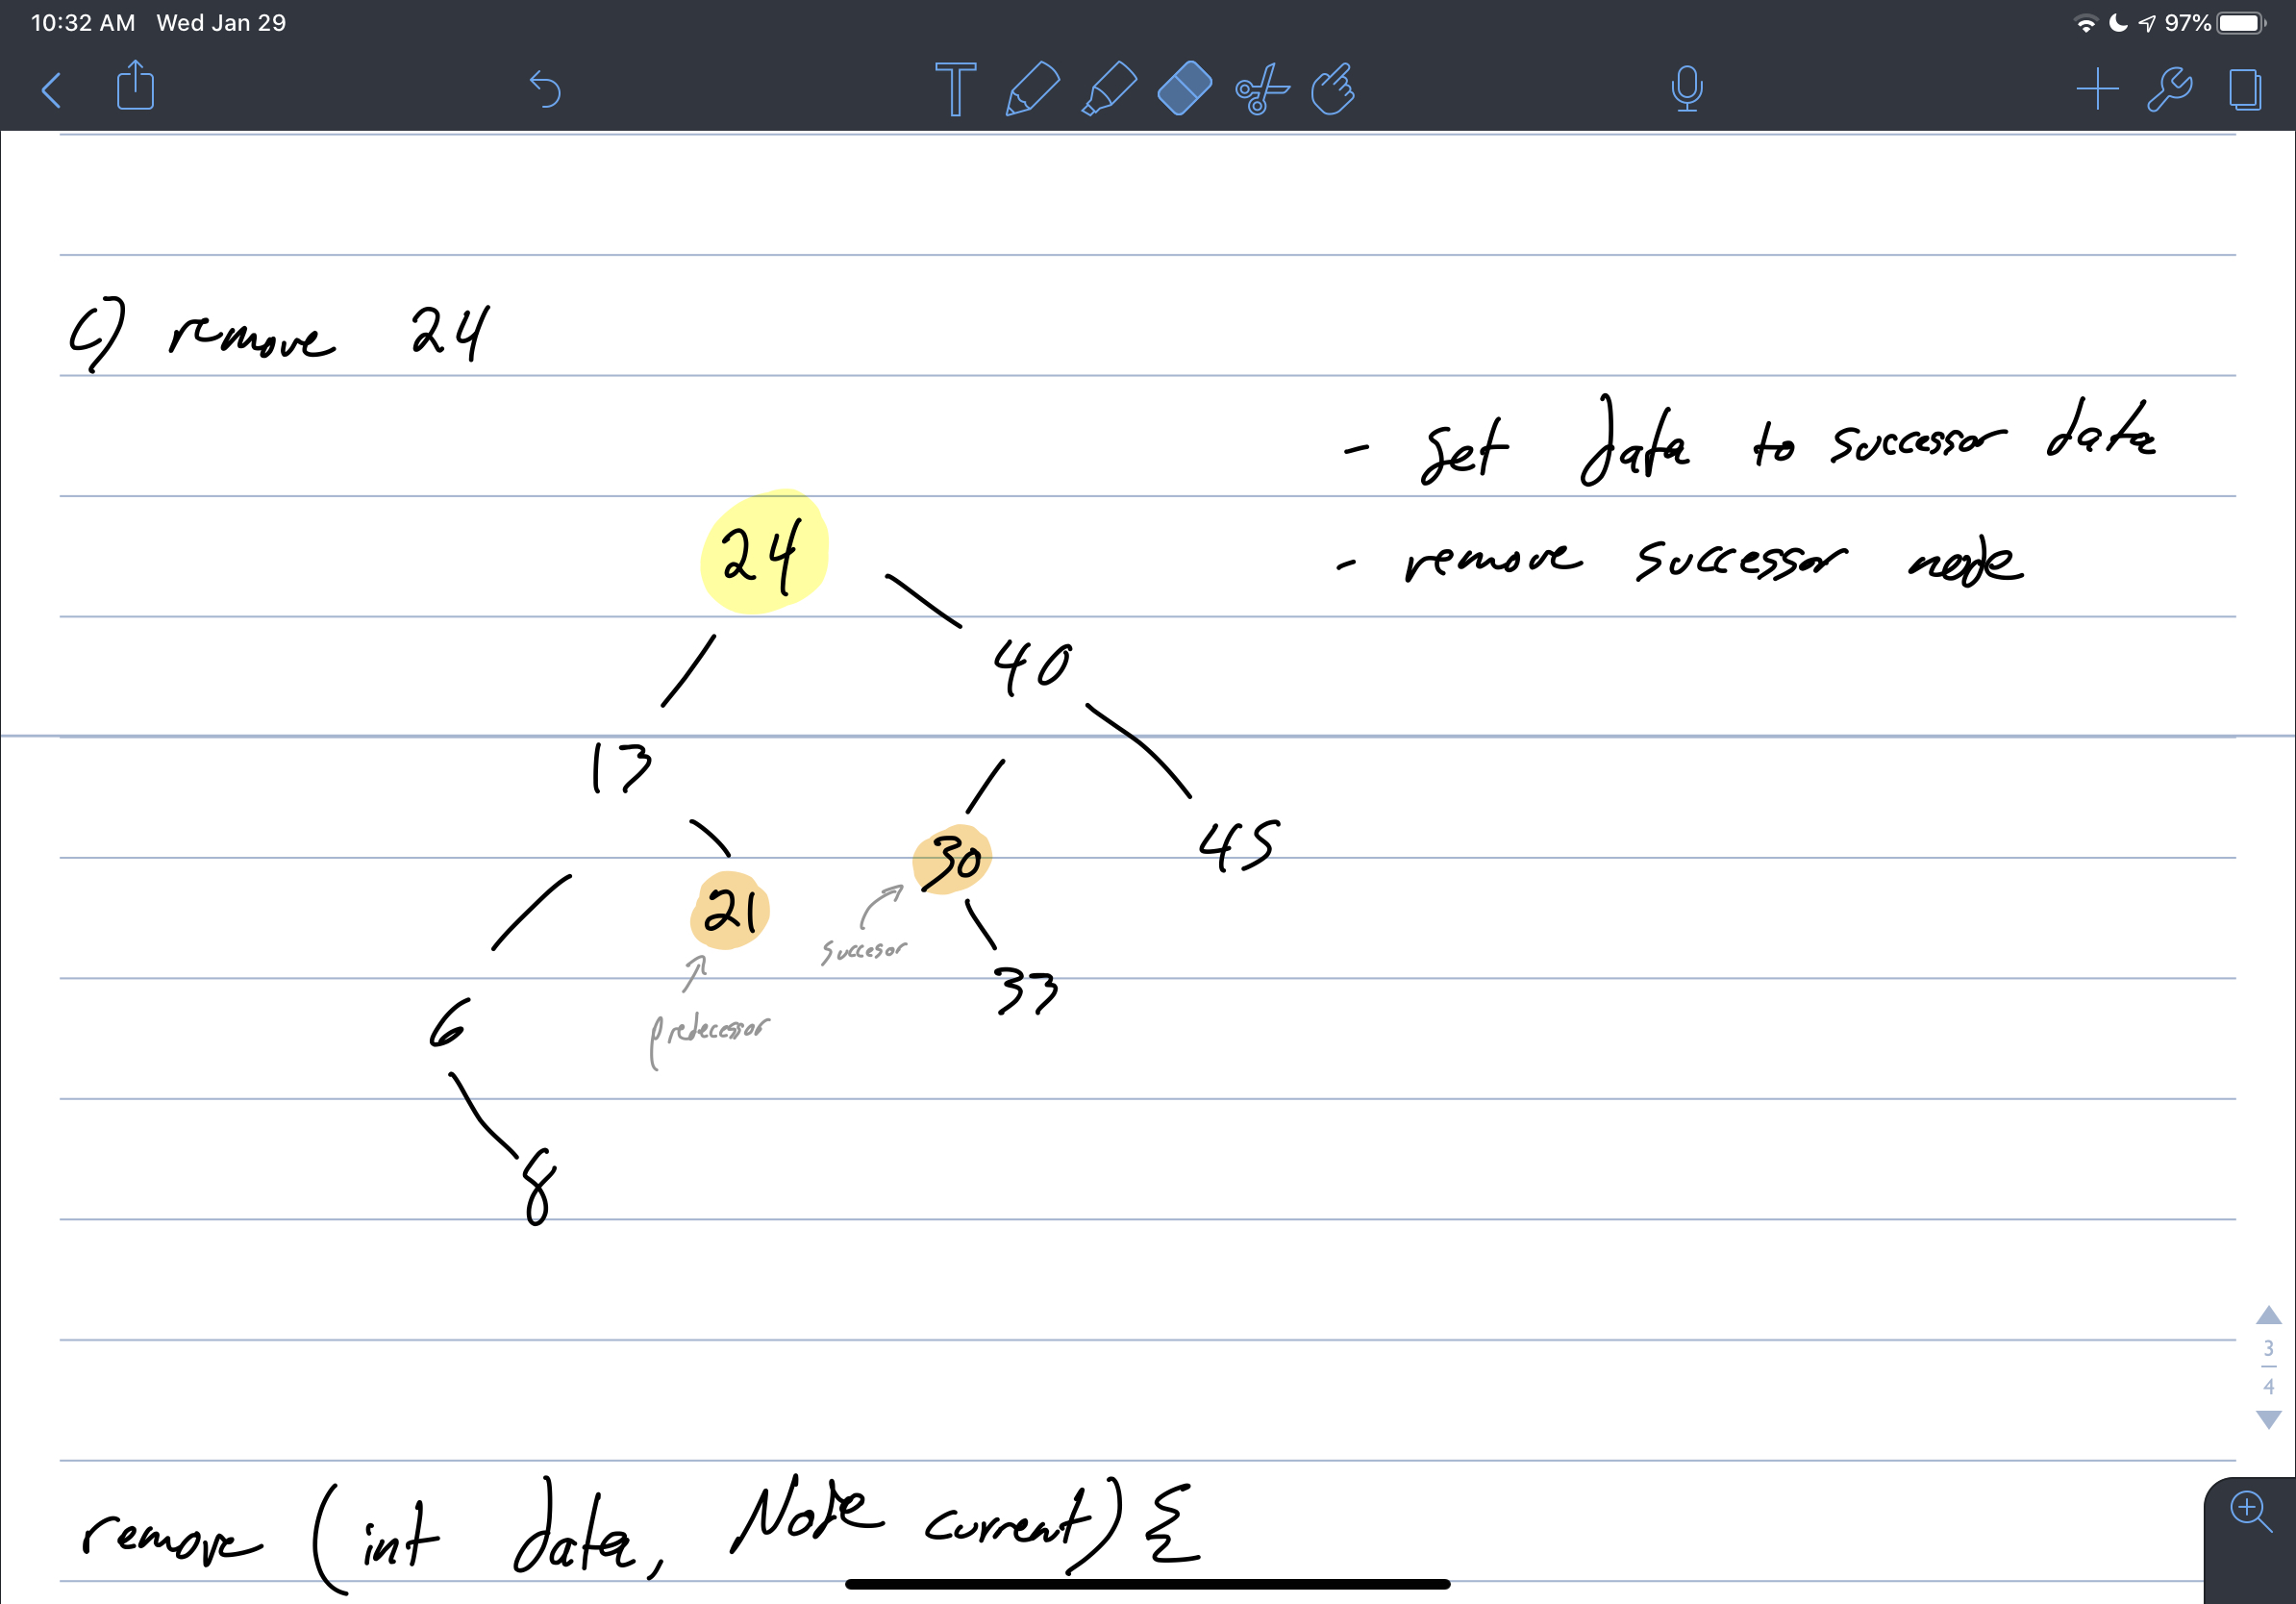 10:32 AM Wed Jan 29 97%
T
C) remove 24
- Set Data to successor data
- remove successor node
24
40
13
30
45
21
succesor
33
6
predecessor
8
3
4
remove (int data, Node current) {